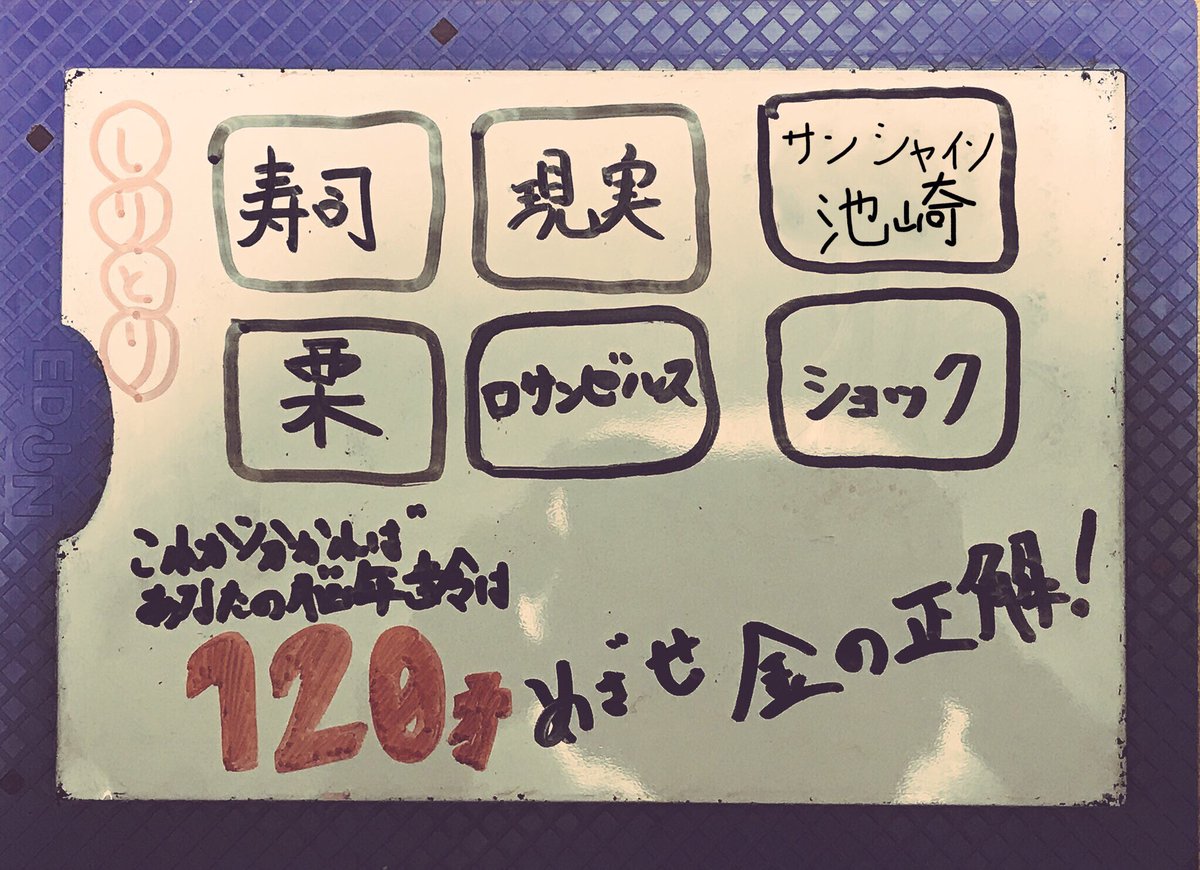 しりとり
寿司
現実
サンシャイン
池崎
栗
ロサンゼルス
ショック
EDION
これが分かれば
あなたの脳年齢は
120才
めざせ金の正解!